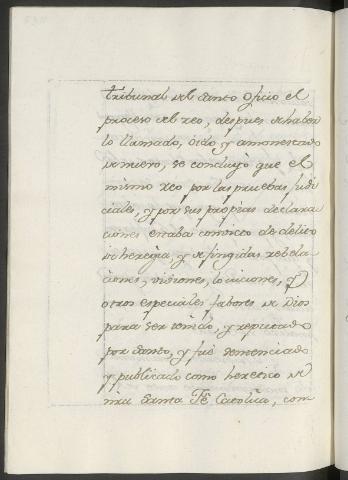 tribunal del Santo Oficio el
proceso del reo, despues de haber
lo llamado, oido y amonestado
de nuevo, se concluyò que el
mismo reo por las pruebas judi
ciales, y por sus propias declara
ciones estaba convicto de delito
de heregia, y de fingidas rebela
ciones, visiones, locuciones, y
otros especiales fabores de Dios
para ser tenido, y reputado
por Santo, y fuè denunciado
y publicado como heretico de
nrâ Santa Fê Catolica, com